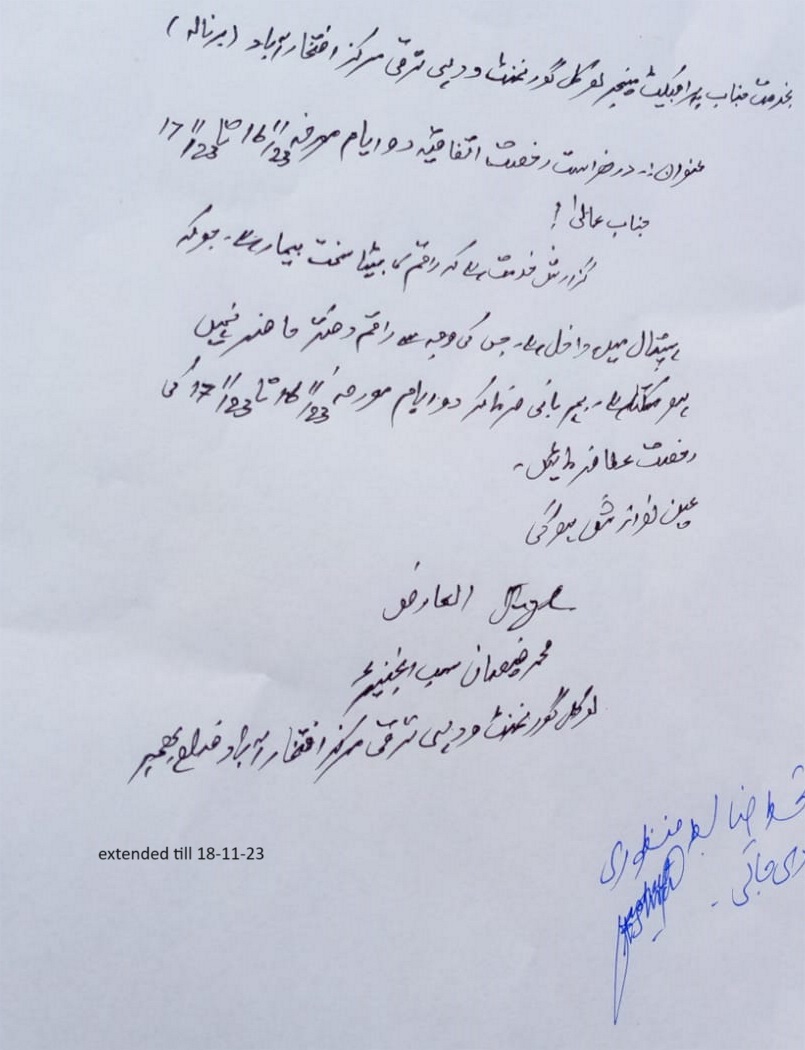 بخدمت جناب پراجیکٹ مینجر لوکل گورنمنٹ و دیہی ترقی مرکز افتخار آباد (برنالہ)
عنوان :۔ درخواست رخصت اتفاقیہ دو ایام مورخہ 16/11/23 تا 17/11/23
جناب عالی!
گزارش خدمت ہے کہ راقم کا بیٹا سخت بیمار ہے۔ جو کہ
ہسپتال میں داخل ہے۔ جس کی وجہ سے راقم دفتر حاضر نہیں
ہو سکتا ہے۔ مہربانی فرما کر دو ایام مورخہ 16/11/23 تا 17/11/23 کی
رخصت عطا فرمائیں۔
عین نوازش ہو گی
العارض
محمد سب انجینئر
لوکل گورنمنٹ و دیہی ترقی مرکز افتخار آباد ضلع بھمبر
extended till 18-11-23
ضابطہ منظوری
دی جاتی ۔